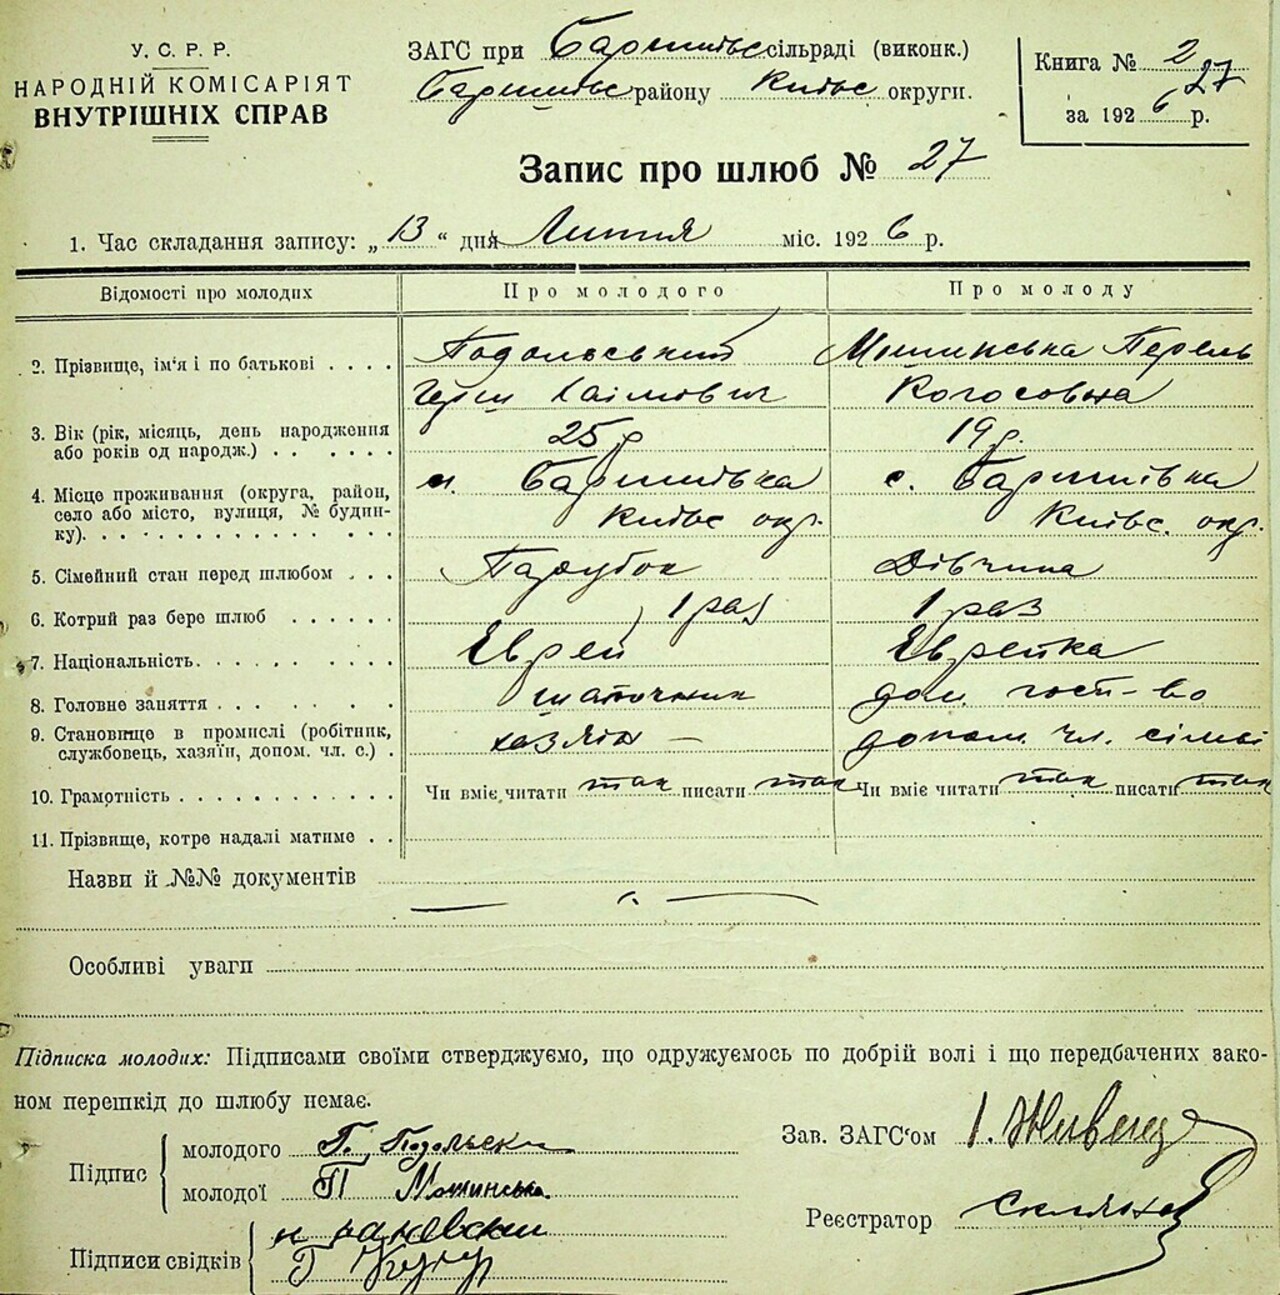 У. С. Р. Р.
НАРОДНІЙ КОМІСАРІЯТ
ВНУТРІШНІХ СПРАВ
ЗАГС при Баришівс сільраді (виконк.)
Баришівс району Київс округи.
Книга № 2
27
за 1926 р.
Запис про шлюб № 27
1. Час складання запису: „13“ дня Лютня міс. 1926 р.
Відомості про молодих
Про молодого
Про молоду
2. Прізвище, ім'я і по батькові . . . .
Подольський
Герш Хаімович
Мошинська Перель
3. Вік (рік, місяць, день народження
або років од народж.) . . . . . .
25 р
19 р.
4. Місце проживання (округа, район,
село або місто, вулиця, № будин-
ку). . . . . . . . . . . . . . .
м. Баришівка
Київс окр.
с. Баришівка
Київс. окр.
5. Сімейний стан перед шлюбом . . .
Парубок
Дівчина
6. Котрий раз бере шлюб . . . . . .
1 раз
1 раз
7. Національність. . . . . . . . . .
Єврей
Єврейка
8. Головне заняття . . . . . . . . .
шапочник
дом. госп-во
9. Становище в промислі (робітник,
службовець, хазяїн, допом. чл. с.) .
хазяін —
допом. чл. сімьі
10. Грамотність . . . . . . . . . . . .
Чи вміє читати так писати так
Чи вміє читати так писати так
11. Прізвище, котре надалі матиме . .
Назви й №№ документів
Особливі уваги
Підписка молодих: Підписами своїми стверджуємо, що одружуємось по добрій волі і що передбачених зако-
ном перешкід до шлюбу немає.
Підпис
молодого Г. Подольски
молодої П Мошинська
Підписи свідків
Зав. ЗАГС'ом
Реєстратор